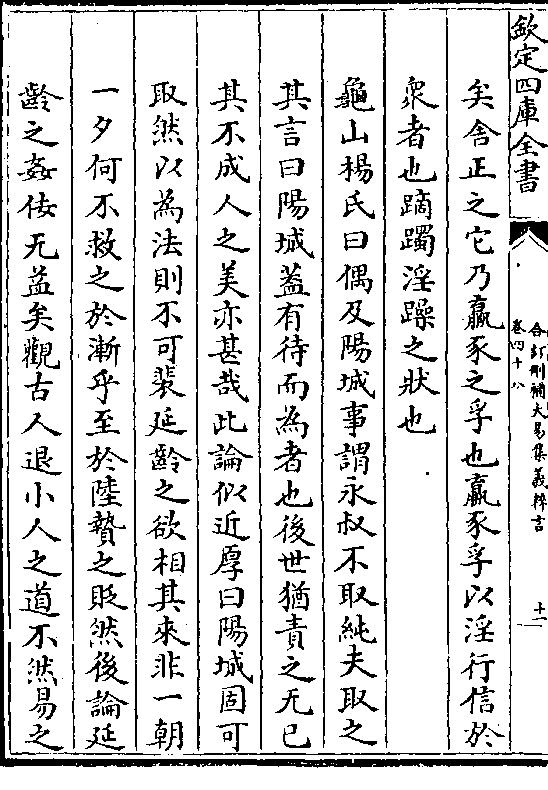 欽定四庫全書
合訂刪補大易集義粹言
卷四十八
十一
矣舍正之它乃羸豕之孚也羸豕孚以淫行信於
衆者也蹢躅淫躁之狀也
龜山楊氏曰偶及陽城事謂永叔不取純夫取之
其言曰陽城葢有待而為者也後世猶責之无已
其不成人之美亦甚哉此論似近厚曰陽城固可
取然以為法則不可裴延齡之欲相其來非一朝
一夕何不救之於漸乎至於陸贄之貶然後論延
齡之姦佞无益矣觀古人退小人之道不然易之